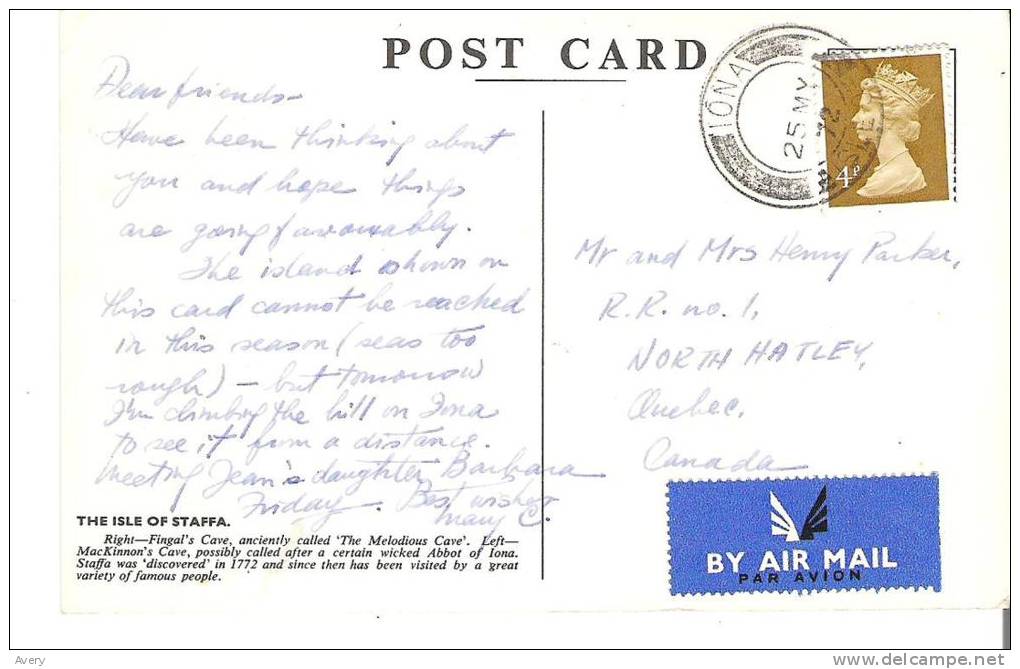 POST CARD
IONA
25 MY
72
4P
Dear friends—
Have been thinking about
you and hope things
are going favourably.
The island shown on
this card cannot be reached
in this season (seas too
rough) – but tomorrow
I'm climbing the hill on Iona
to see it from a distance.
Meeting Jean's daughter Barbara
Friday. Best wishes
Mary C.
Mr and Mrs Henry Parker,
R.R. no. 1,
NORTH HATLEY,
Quebec,
Canada
BY AIR MAIL
PAR AVION
THE ISLE OF STAFFA.
Right—Fingal's Cave, anciently called 'The Melodious Cave'. Left—
MacKinnon's Cave, possibly called after a certain wicked Abbot of Iona.
Staffa was 'discovered' in 1772 and since then has been visited by a great
variety of famous people.
Avery
delcampe.net